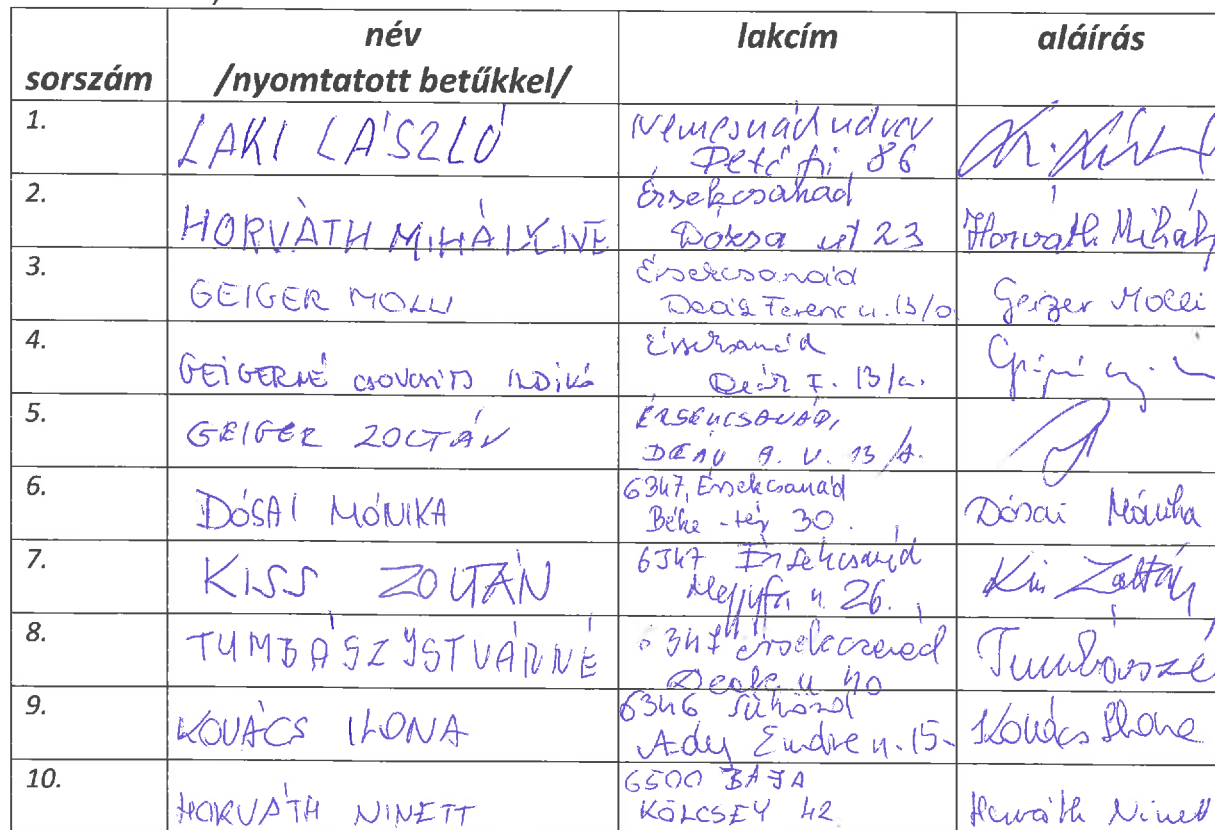 sorszám név /nyomtatott betűkkel/ lakcím aláírás
1. LAKI LÁSZLÓ Nemesnádudvar
Petőfi 86
2. HORVÁTH MIHÁLYNÉ Érsekcsanád
Dózsa út 23 Horváth Mihály
3. GEIGER MOLLI Érsekcsanád
Deák Ferenc u. 13/a Geiger Molli
4. GEIGERNÉ ILDIKÓ Érsekcsanád
Deák F. 13/a.
5. GEIGER ZOLTÁN ÉRSEKCSANÁD,
DEÁK U. 13/A.
6. DÓSAI MÓNIKA 6347, Érsekcsanád
Béke-tér 30. Dósai Mónika
7. KISS ZOLTÁN 6347 Érsekcsanád
u. 26. Kiss Zoltán
8. TUMBÁSZ YSTVÁNNÉ 6347 érsekcsanád
Deák u 40 Tumbászé
9. KOVÁCS ILONA 6346 Sükösd
Ady Endre u. 15- Kovács Ilona
10. HORVÁTH NINETT 6500 BAJA
KÖLCSEY 42 Horváth Ninett